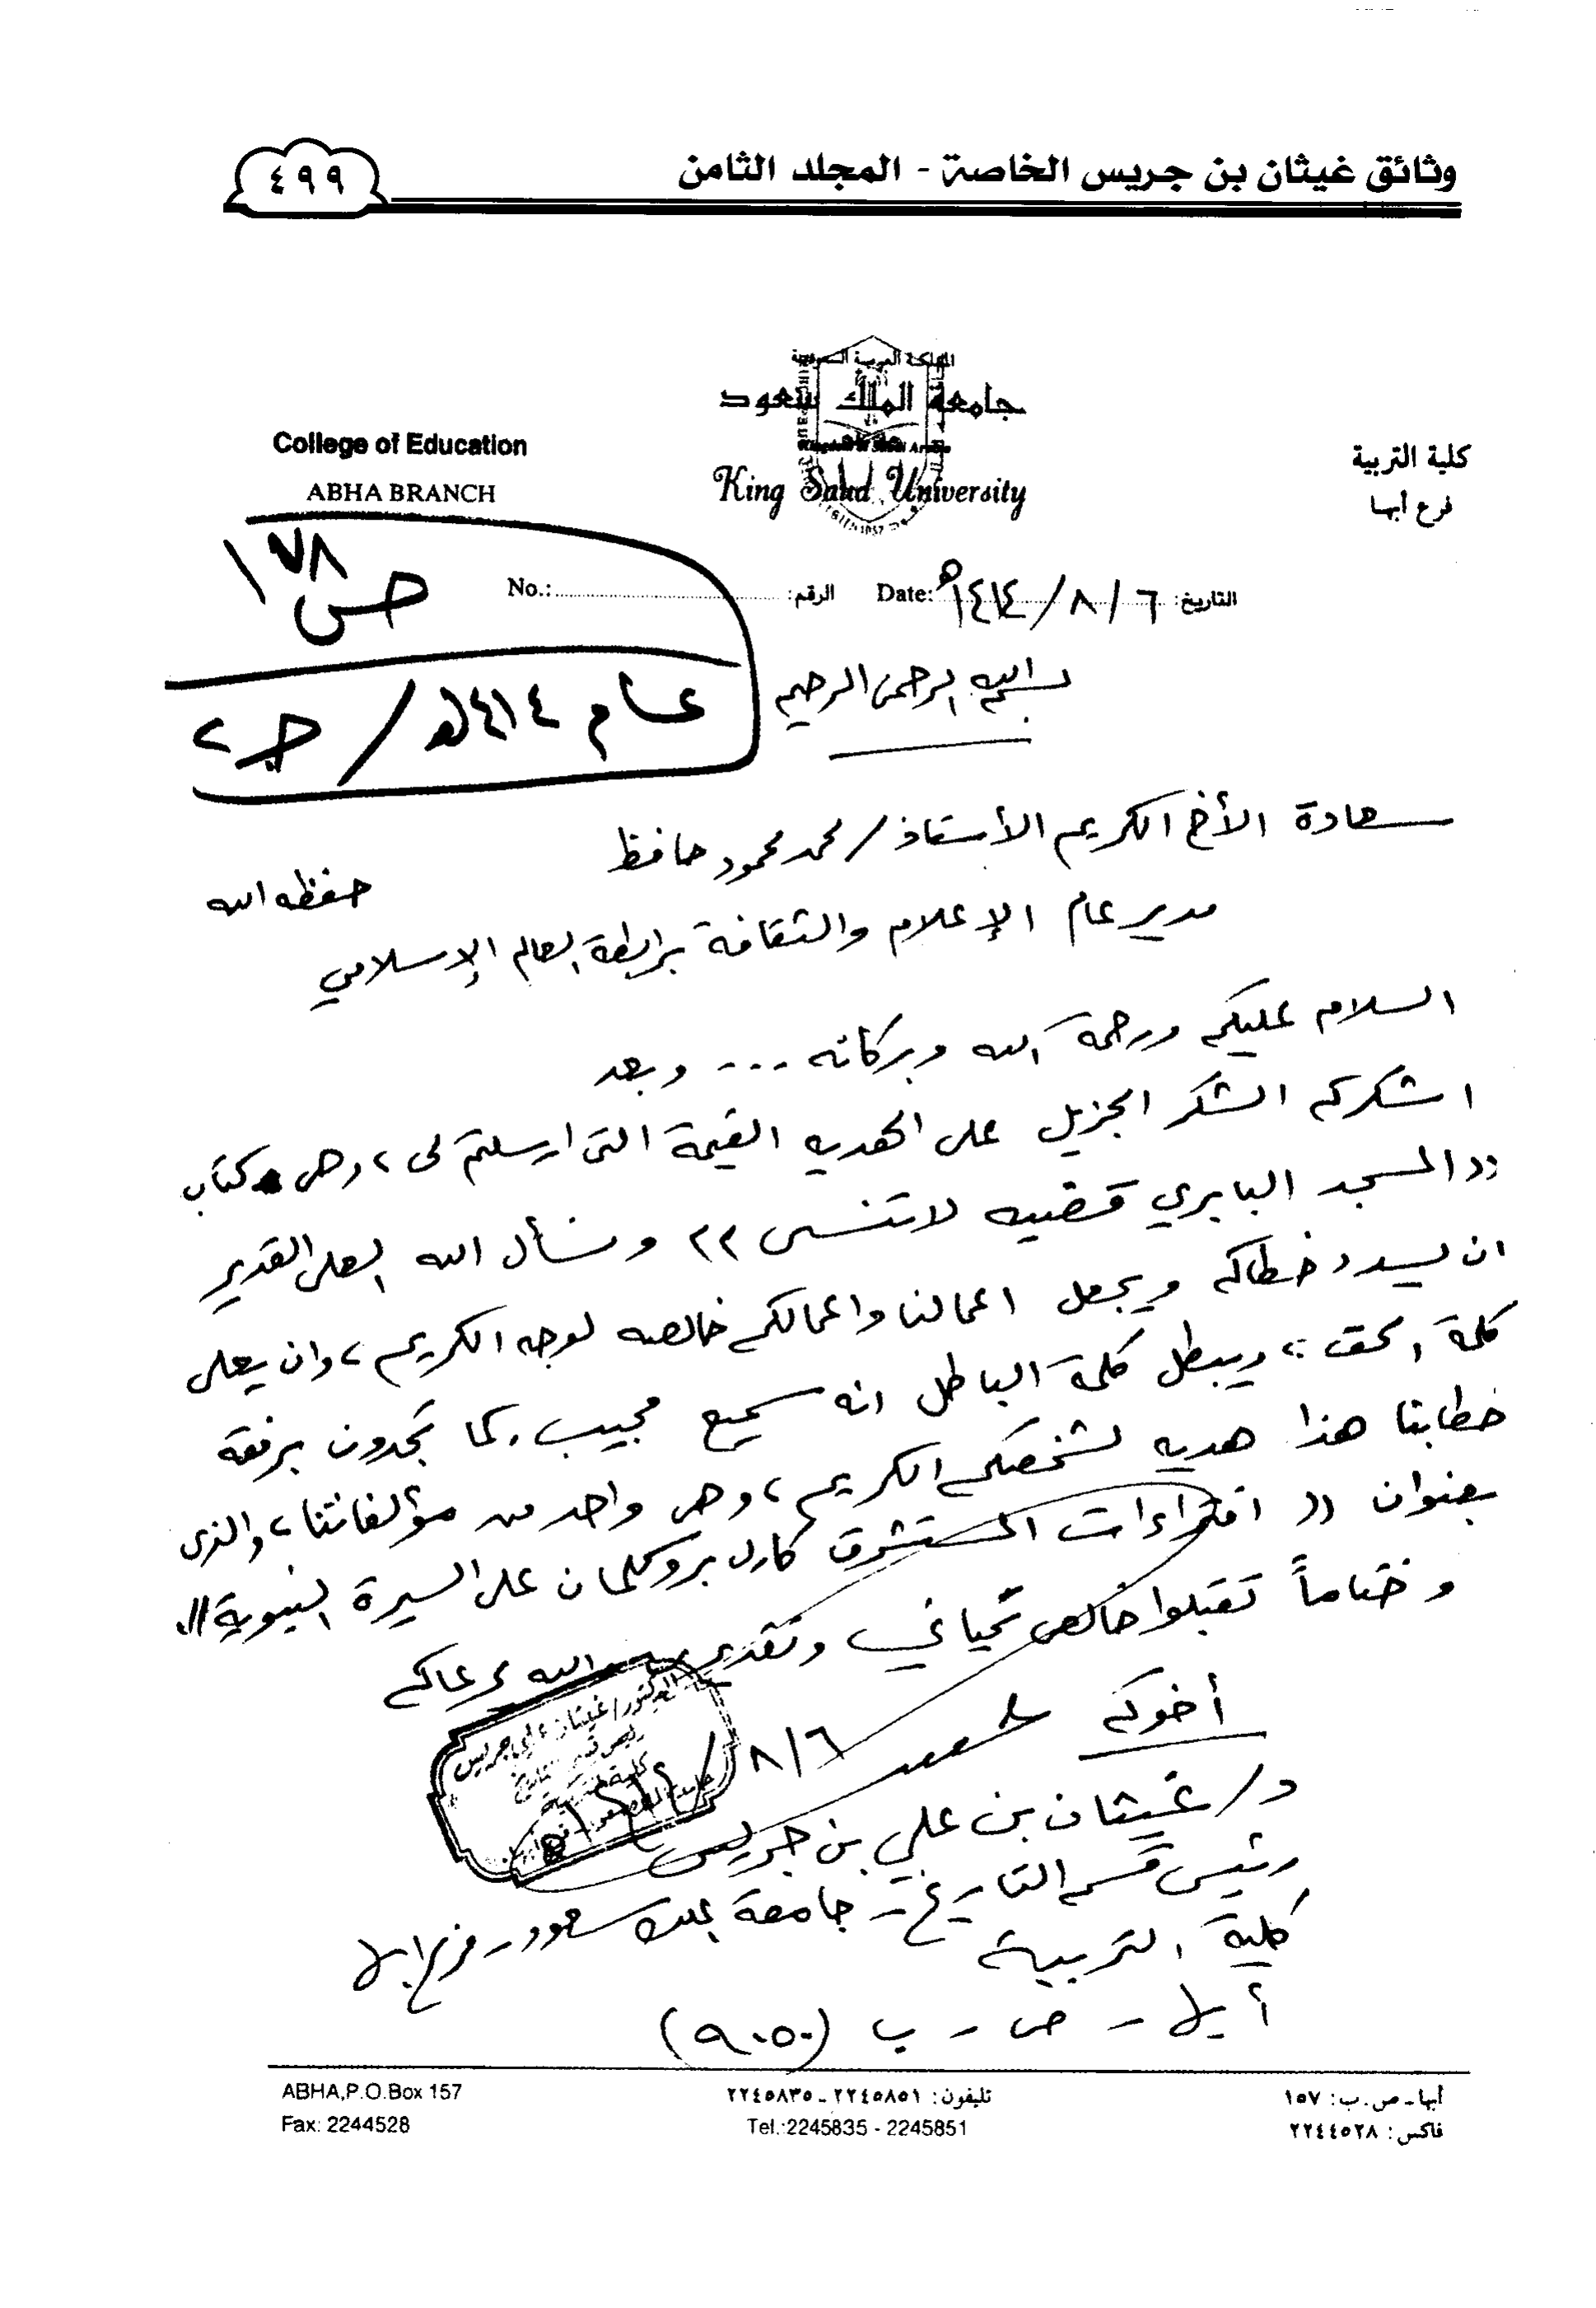 وثائق غيثان بن جريس الخاصة - المجلد الثامن
٤٩٩
المملكة العربية السعودية
جامعة الملك سعود
King Saud University
College of Education
ABHA BRANCH
كلية التربية
فرع أبها
التاريخ: ٦/٨/١٤١٤هـ Date:
الرقم: No.:
ص ١٧٨
عام ١٤١٤هـ / جـ ٢
بسم الله الرحمن الرحيم
سعادة الأخ الكريم الأستاذ / محمد محمود حافظ
مدير عام الإعلام والثقافة برابطة العالم الإسلامي
حفظه الله
السلام عليكم ورحمة الله وبركاته ... وبعد
اشكركم الشكر الجزيل على الهديه القيمة التى ارسلتم لى، وهى كتاب
((المسجد البابري قضيه لا تنسى)) ونسأل الله العلى القدير
ان يسدد خطاكم ويجعل اعمالنا واعمالكم خالصه لوجه الكريم، وان يعلى
كلمة الحق، ويبطل كلمة الباطل انه سميع مجيب. كما تجدون برفقة
خطابنا هذا هديه لشخصكم الكريم، وهى واحد من مؤلفاتنا، والذى
بعنوان (( افتراءات المستشرق كارل بروكلمان على السيرة النبوية)).
وختاماً تقبلوا خالص تحياتي وتقديري والله يرعاكم
أخوكم
٦/٨/١٤١٤هـ
الدكتور/ غيثان علي جريس
د/ غيثان بن علي بن جريس
رئيس قسم التاريخ - جامعة الملك سعود - فرع ابها
كلية التربية
أبها - ص - ب (٩٠٥٠)
أبها - ص. ب: ١٥٧
فاكس: ٢٢٤٤٥٢٨
تليفون: ٢٢٤٥٨٥١ - ٢٢٤٥٨٣٥
Tel.:2245835 - 2245851
ABHA,P.O.Box 157
Fax: 2244528